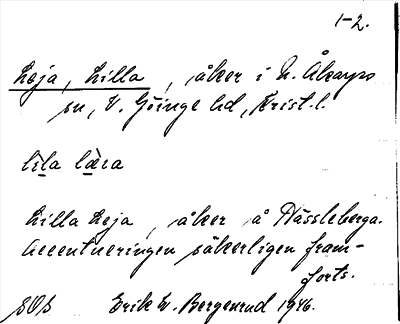 1-2.
Leja, Lilla, åker i N. Åkarps
sn, V. Göinge hd, Krist. l.
lila læia
Lilla Leja, åker å Hässleberga.
Accentueringen säkerligen fram-
förts.
SOS Erik W. Bergenrud 1946.